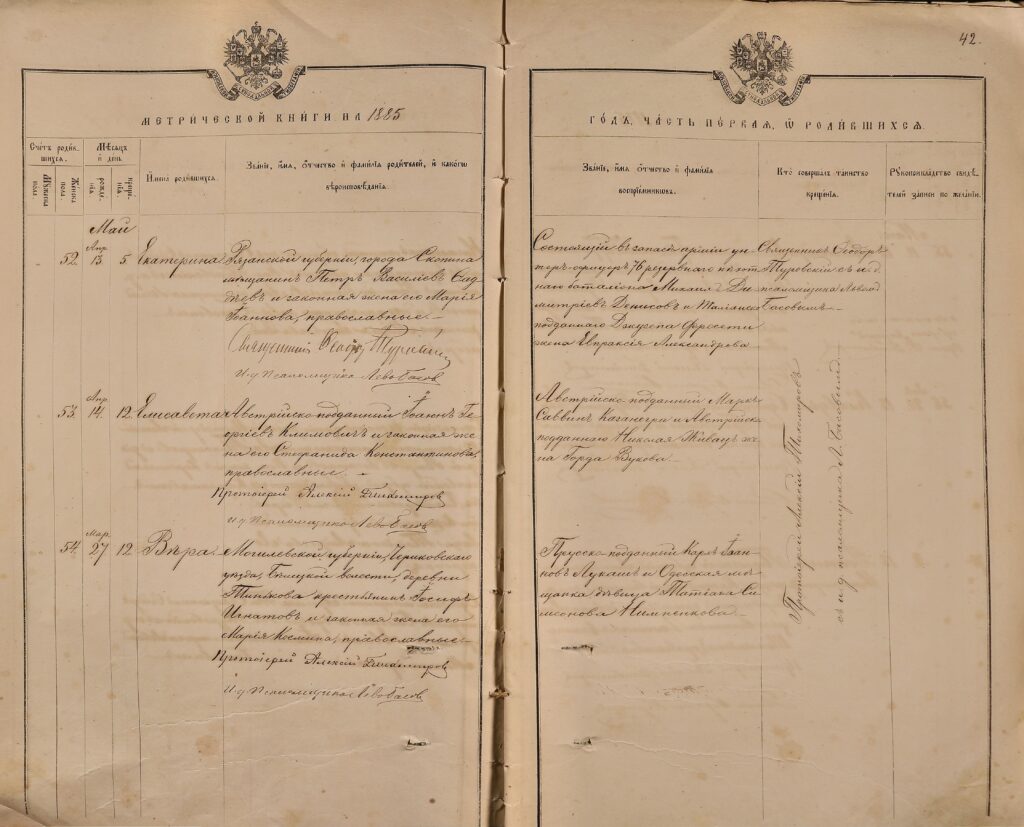 42.
МЕТРИЧЕСКОЙ КНИГИ НА 1885
ГОДЪ, ЧАСТЬ ПЕРВАЯ, Ѡ РОДИВШИХСЯ.
Счетъ родив-
шихся.
Мужеска
пола
Женска
пола
Мѣсяцъ
и день
рожде-
нія
креще-
нія.
Имена родившихся.
Званіе, имя, отчество и фамилія родителей, и какого
вѣроисповѣданія.
Званіе, имя, отчество и фамилія
воспріемниковъ.
Кто совершалъ таинство
крещенія.
Рукоприкладство свидѣ-
телей записи по желанію.
Май
52.
Апр.
13
5
Екатерина
Рязанской губерніи, города Скопина
мѣщанинъ Петръ Василіевъ
и законная жена его Марія
Іоаннова, православные.
Священникъ Ѳеодоръ Туровскій
И. д. Псаломщика Левъ Басовъ
Состоящій въ запасѣ арміи ун-
теръ-офицеръ 76 резервнаго пѣхот-
наго баталіона Михаилъ Ди-
митріевъ Денисовъ и Италіанско
подданнаго Джузепа Фересети
жена Евпраксія Александрова
Священникъ Ѳеодоръ
Туровскій съ и. д.
псаломщика Львомъ
Басовымъ.
53.
Апр.
14
12
Елисавета
Австрійско-подданный Іоаннъ Ге-
оргіевъ Климовичъ и законная же-
на его Стефанида Константинова,
православные.
Протоіерей Алексій
И. д. Псаломщика Левъ Басовъ
Австрійско-подданный Маркъ
Саввинъ и Австрійско
подданнаго Николая Живацъ же-
на Горда Вукова.
54.
Мар.
27
12
Вѣра.
Могилевской губерніи, Чериковскаго
уѣзда, волости, деревни
крестьянинъ Іосифъ
Игнатовъ и законная жена его
Марія Косьмина, православные.
Протоіерей Алексій
И. д. Псаломщика Левъ Басовъ
Прусско-подданный Карлъ Іоан-
новъ Лукашъ и Одесская мѣ-
щанка дѣвица Татіана Си-
меонова
Протоіерей Алексій
съ и. д. псаломщика Л. Басовымъ.